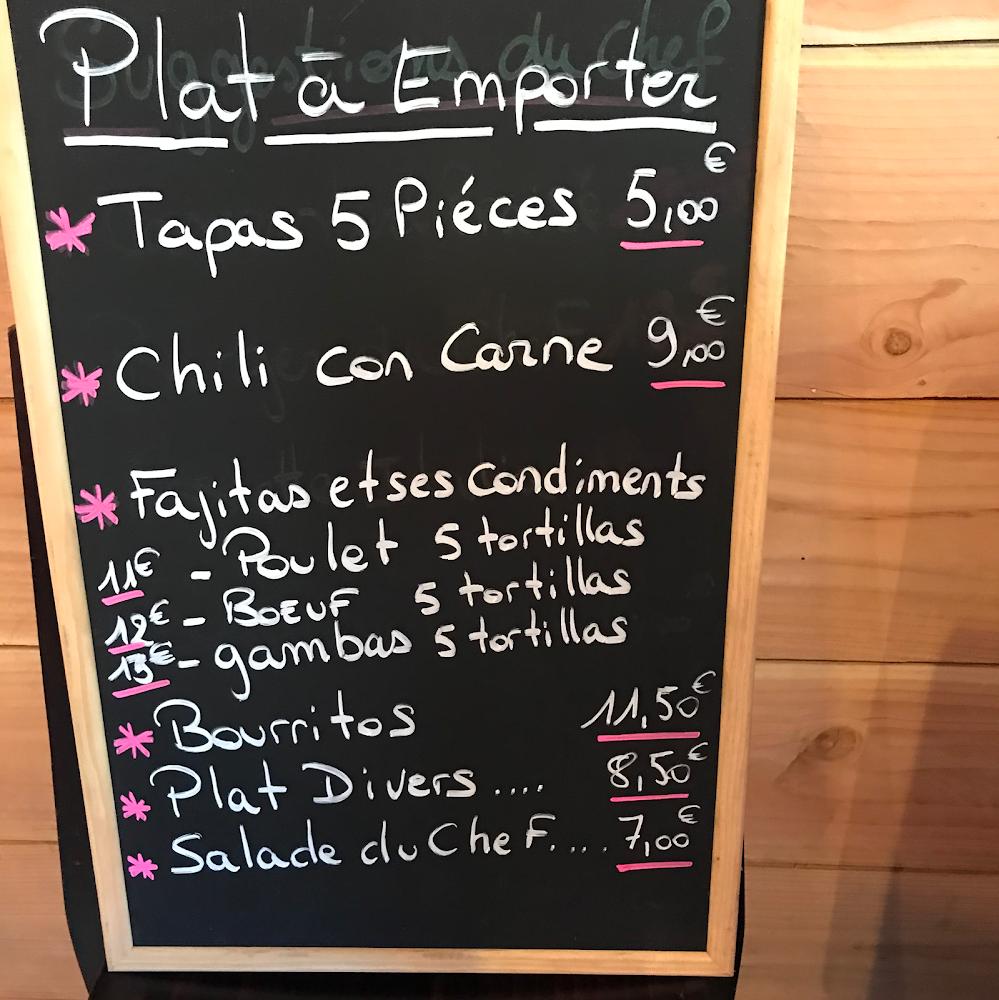 Suggestions du chef
Plat à Emporter
* Tapas 5 Piéces 5,00€
* Chili con Carne 9,00€
* Fajitas et ses condiments
11€ - Poulet 5 tortillas
12€ - BOEUF 5 tortillas
13€ - gambas 5 tortillas
* Bourritos 11,50€
* Plat Divers .... 8,50€
* Salade du CheF.... 7,00€